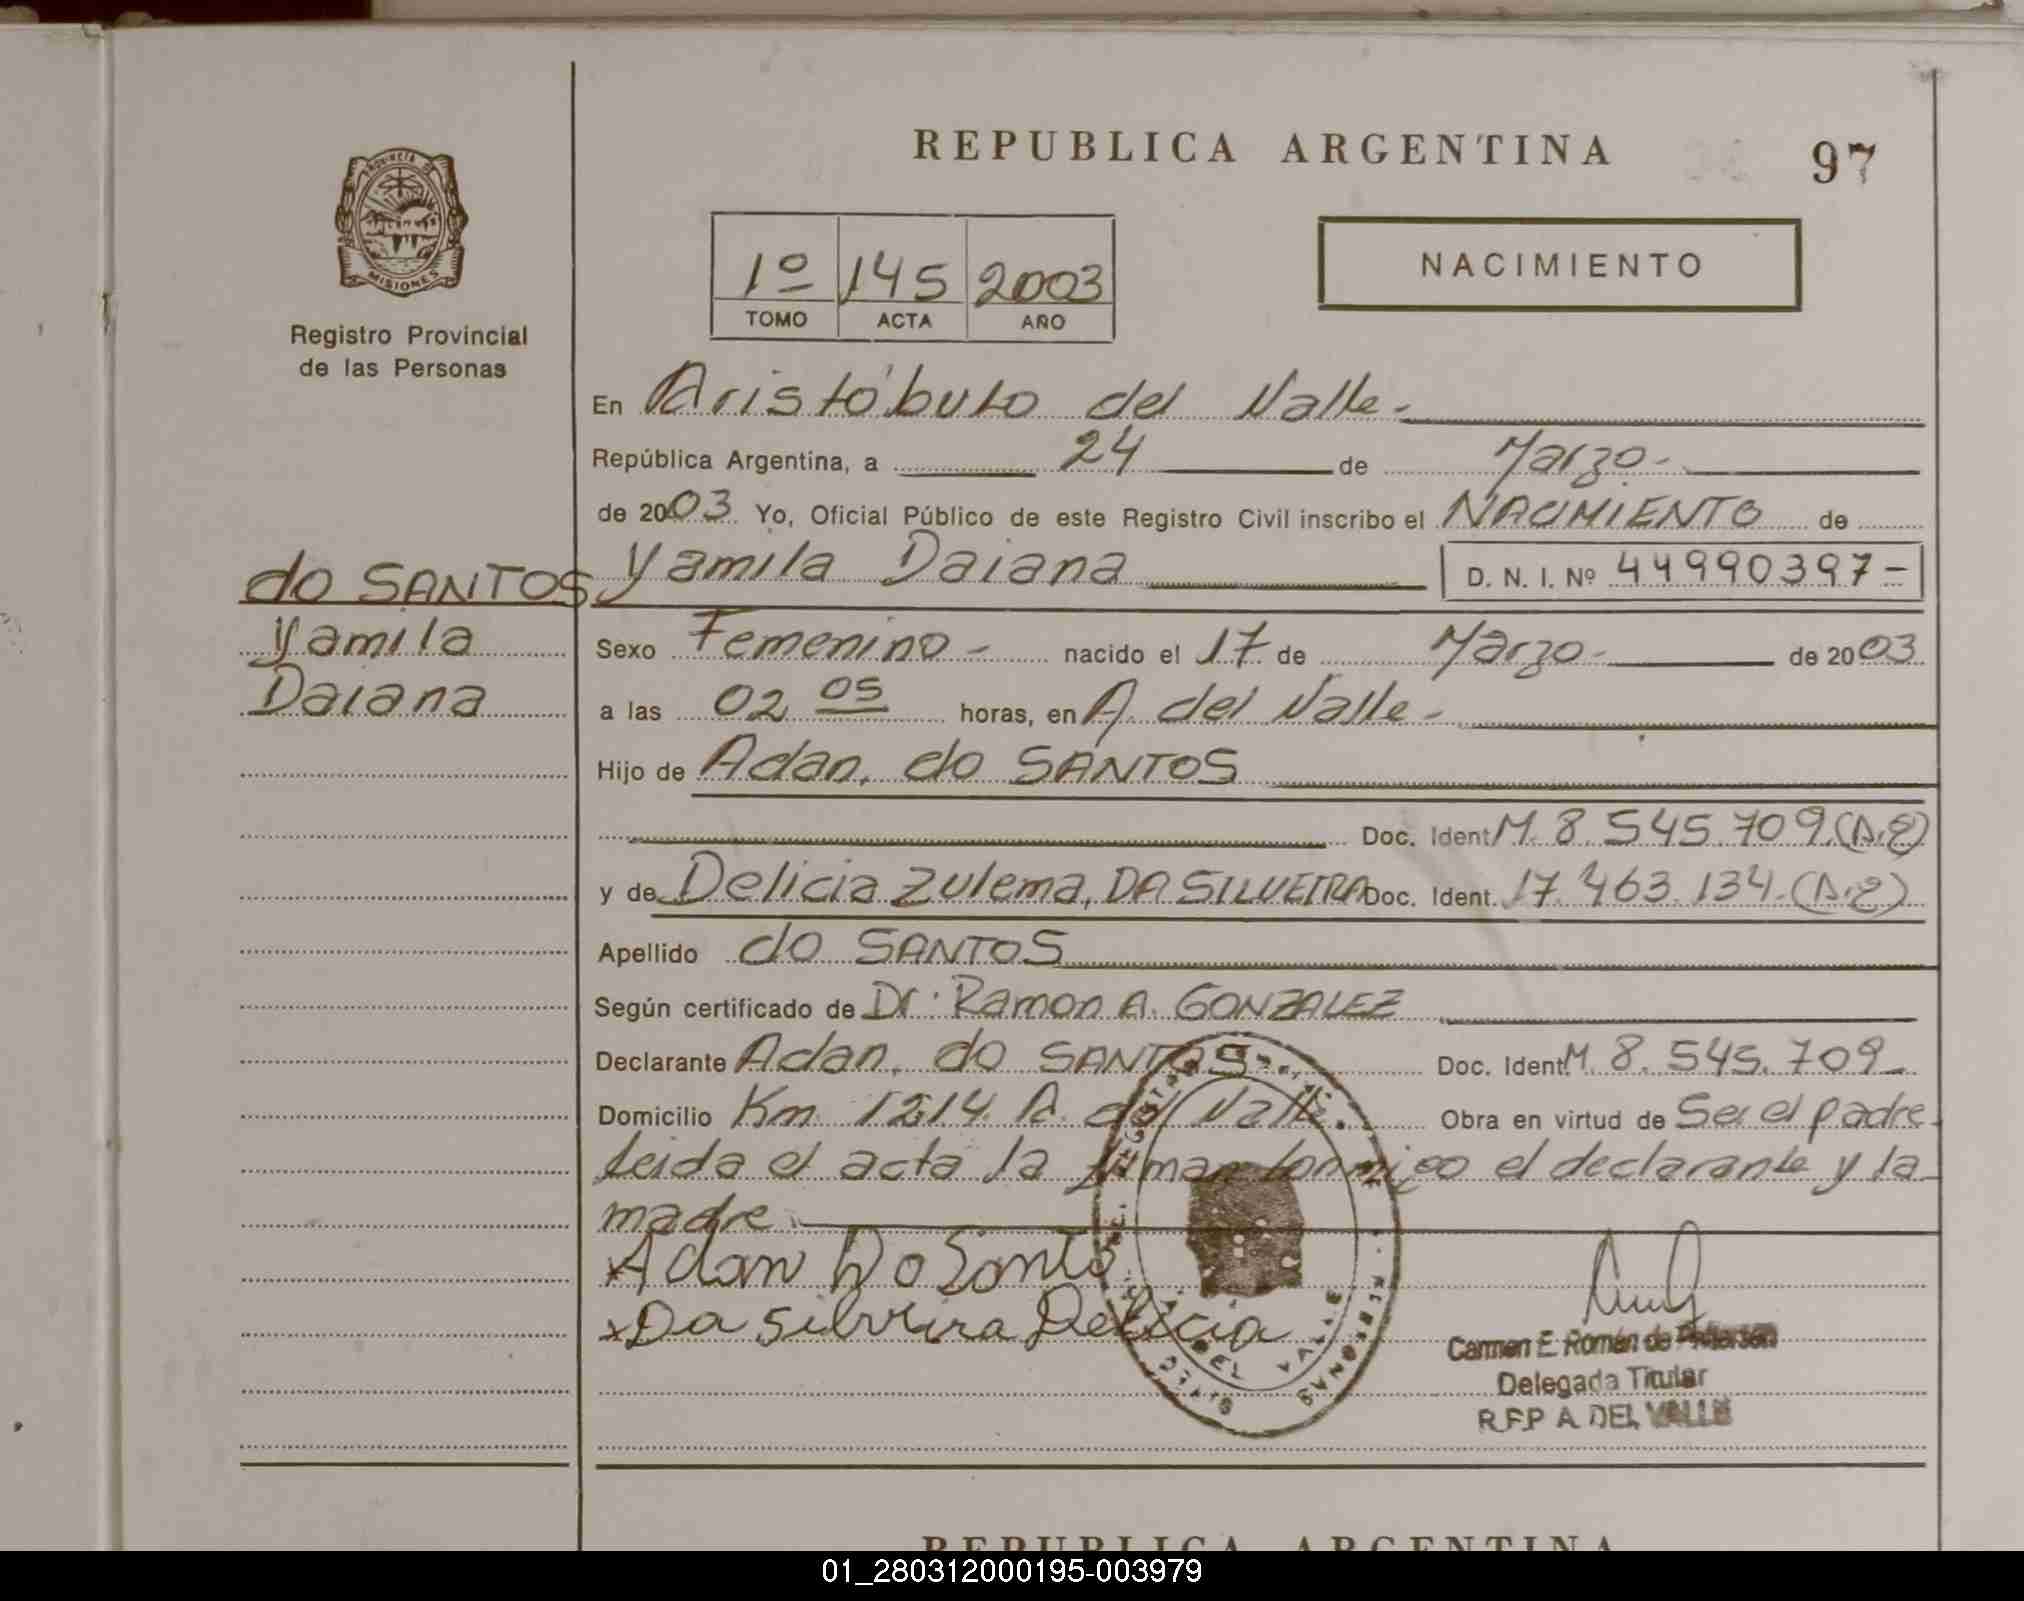 REPUBLICA ARGENTINA
97
PROVINCIA DE
MISIONES
Registro Provincial
de las Personas
1º 145 2003
TOMO ACTA AÑO
NACIMIENTO
En Aristóbulo del Valle-
República Argentina, a 24 de Marzo-
de 2003 Yo, Oficial Público de este Registro Civil inscribo el NACIMIENTO de
do SANTOS
Yamila
Daiana
Yamila Daiana D. N. I. Nº 44990397-
Sexo Femenino- nacido el 17 de Marzo- de 2003
a las 02 05 horas, en A. del Valle-
Hijo de Adan, do SANTOS
Doc. Ident M. 8.545.709.
y de Delicia Zulema, DA SILVEIRA Doc. Ident. 17.463.134.
Apellido do SANTOS
Según certificado de Dr: Ramon A. GONZALEZ
Declarante Adan, do SANTOS Doc. Ident. M. 8.545.709-
Domicilio Km 1214 A. del Valle. Obra en virtud de Ser el padre
leida el acta la firman conmigo el declarante y la
madre
x Adan Do Santo
x Da silveira Delicia
DEL VALLE
Carmen E. Román de
Delegada Titular
R.P.P A. DEL VALLE
REPUBLICA ARGENTINA
01_280312000195-003979